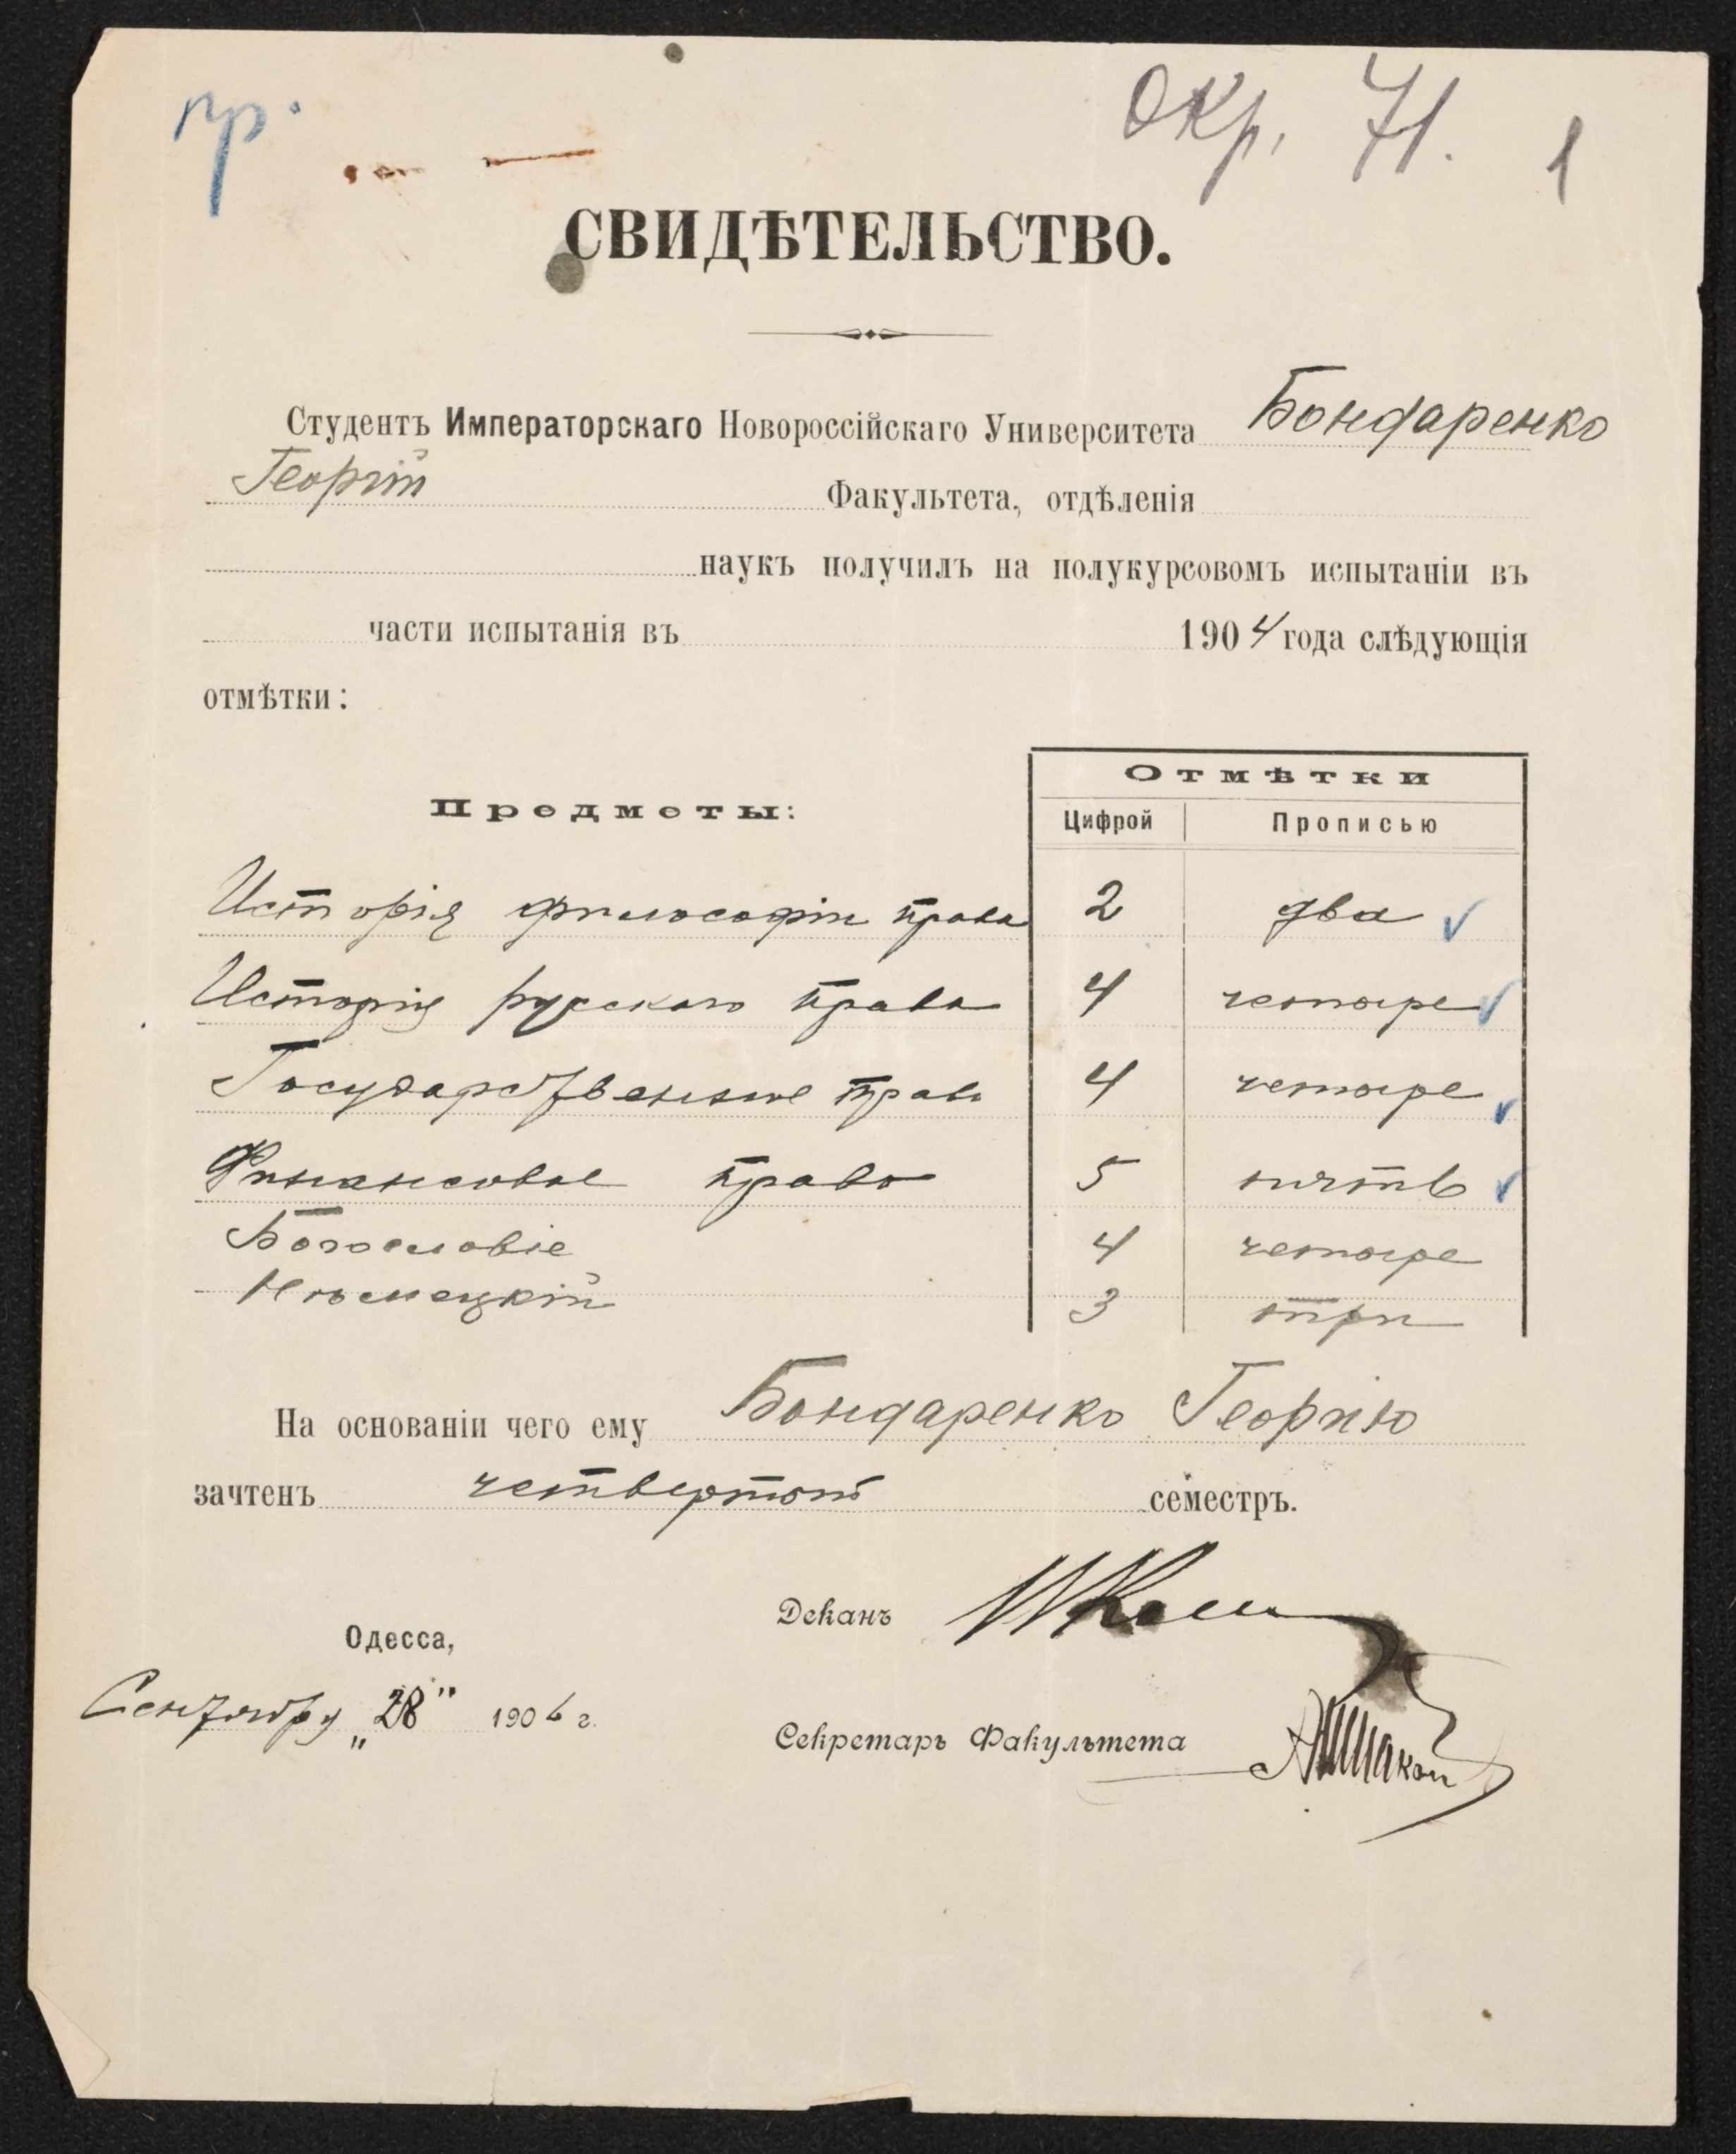 пр.
окр. 71. 1
СВИДѢТЕЛЬСТВО.
Студентъ Императорскаго Новороссійскаго Университета Бондаренко
Георгій Факультета, отдѣленія
наукъ получилъ на полукурсовомъ испытаніи въ
части испытанія въ 1904 года слѣдующія
отмѣтки:
Предметы:
Отмѣтки
Цифрой Прописью
Исторія философіи права 2 два
Исторія русскаго права 4 четыре
Государственное право 4 четыре
Финансовое право 5 пять
Богословіе 4 четыре
Нѣмецкій 3 три
На основаніи чего ему Бондаренко Георгію
зачтенъ четвертый семестръ.
Деканъ
Одесса,
Сентября „28" 1906 г.
Секретарь Факультета